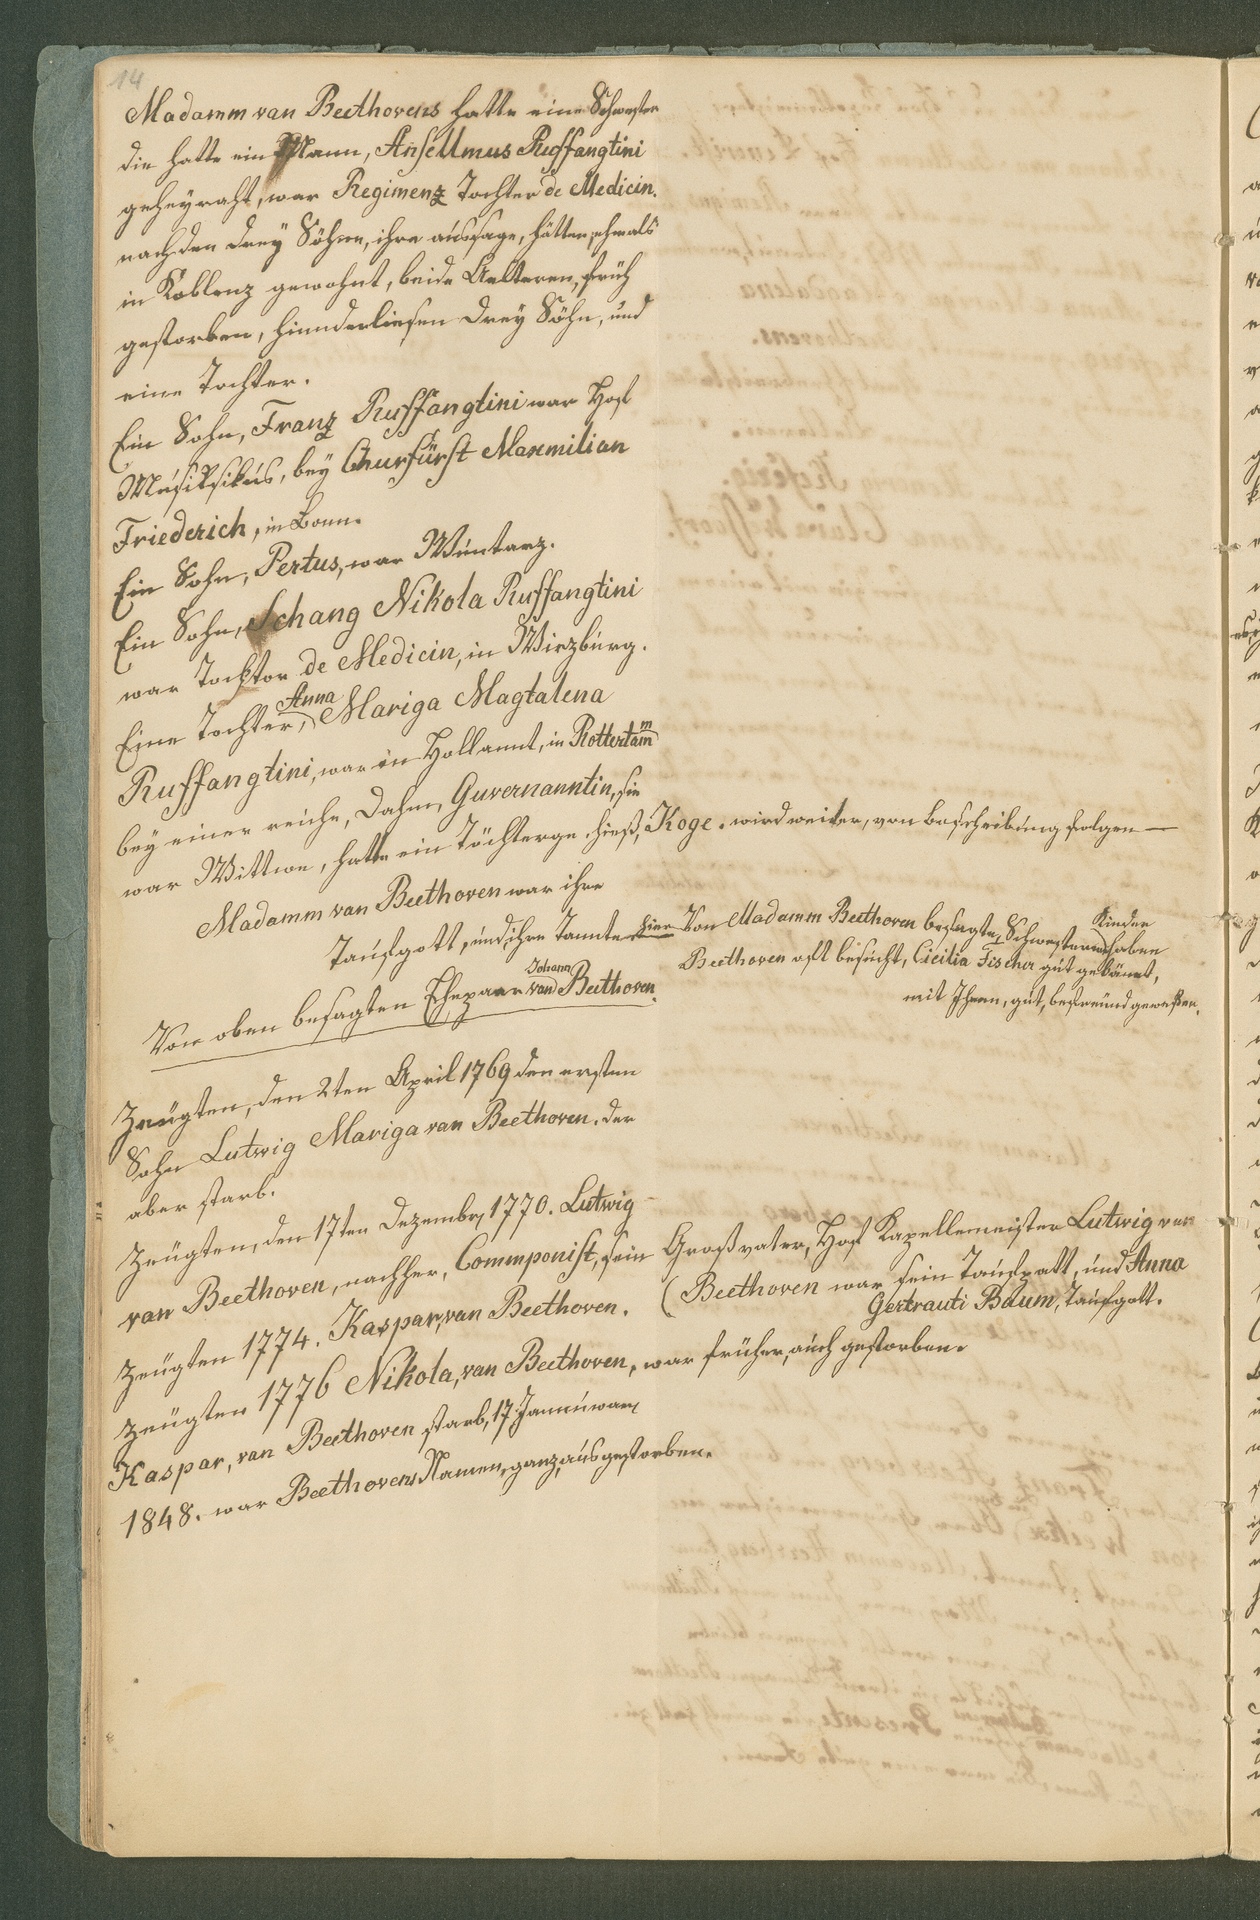 14
Madamm van Beethovens hatte eine Schwester
die hatte ein Mann, Ansellmus Ruffangtini
geheyraht, war Regimenz Tochter de Medicin.
nach den Drey Söhne, ihre aussage, hätten, ehmals
in Koblenz gewohnt, beide Aelteren, früh
gestorben, hinnderliesen Drey Söhn, und
eine Tochter.
Ein Sohn, Franz Ruffangtini war Hof
Musiksikus, bey Churfürst Maxmilian
Friederich, in Bonn.
Ein Sohn, Pertus, war Wuntarz.
Ein Sohn, Schang Nikola Ruffangtini
war Tocktor de Medicin, in Wirzburg.
Eine Tochter, Anna Mariga Magtalena
Ruffangtini, war in Hollannt, in Rottertamm
bey einer reiche, Dahm, Guvernanntin, sie
war Wittwe, hatte ein Töchterge hieß, Koge. wird weiter, von beschreibung folgen —
Madamm van Beethoven war ihre
Taufgott, und ihre Tannte hier Von Madamm Beethoven besagte, Schwester Kinder haben
Beethoven oft besucht, Cicilia Fischer gut gekännt,
mit Ihnen, gut, befreund geweßen.
Von oben besagten Ehepaar Johann van Beethoven.
Zeugten, den 2ten April 1769 den ersten
Sohn Lutwig Mariga van Beethoven. der
aber starb.
Zeugten, den 17ten Dezember, 1770. Lutwig
van Beethoven, nachher, Commponist, sein Großvater, Hof Kapellemeister Lutwig van
(Beethoven war sein Taufpatt, und Anna
Gertrauti Baum, Taufgott.
Zeugten 1774. Kaspar, van Beethoven.
Zeugten 1776 Nikola, van Beethoven, war früher, auch gestorben.
Kaspar, van Beethoven starb, 17 Jannuwari
1848. war Beethovens Namen, ganz, ausgestorben.